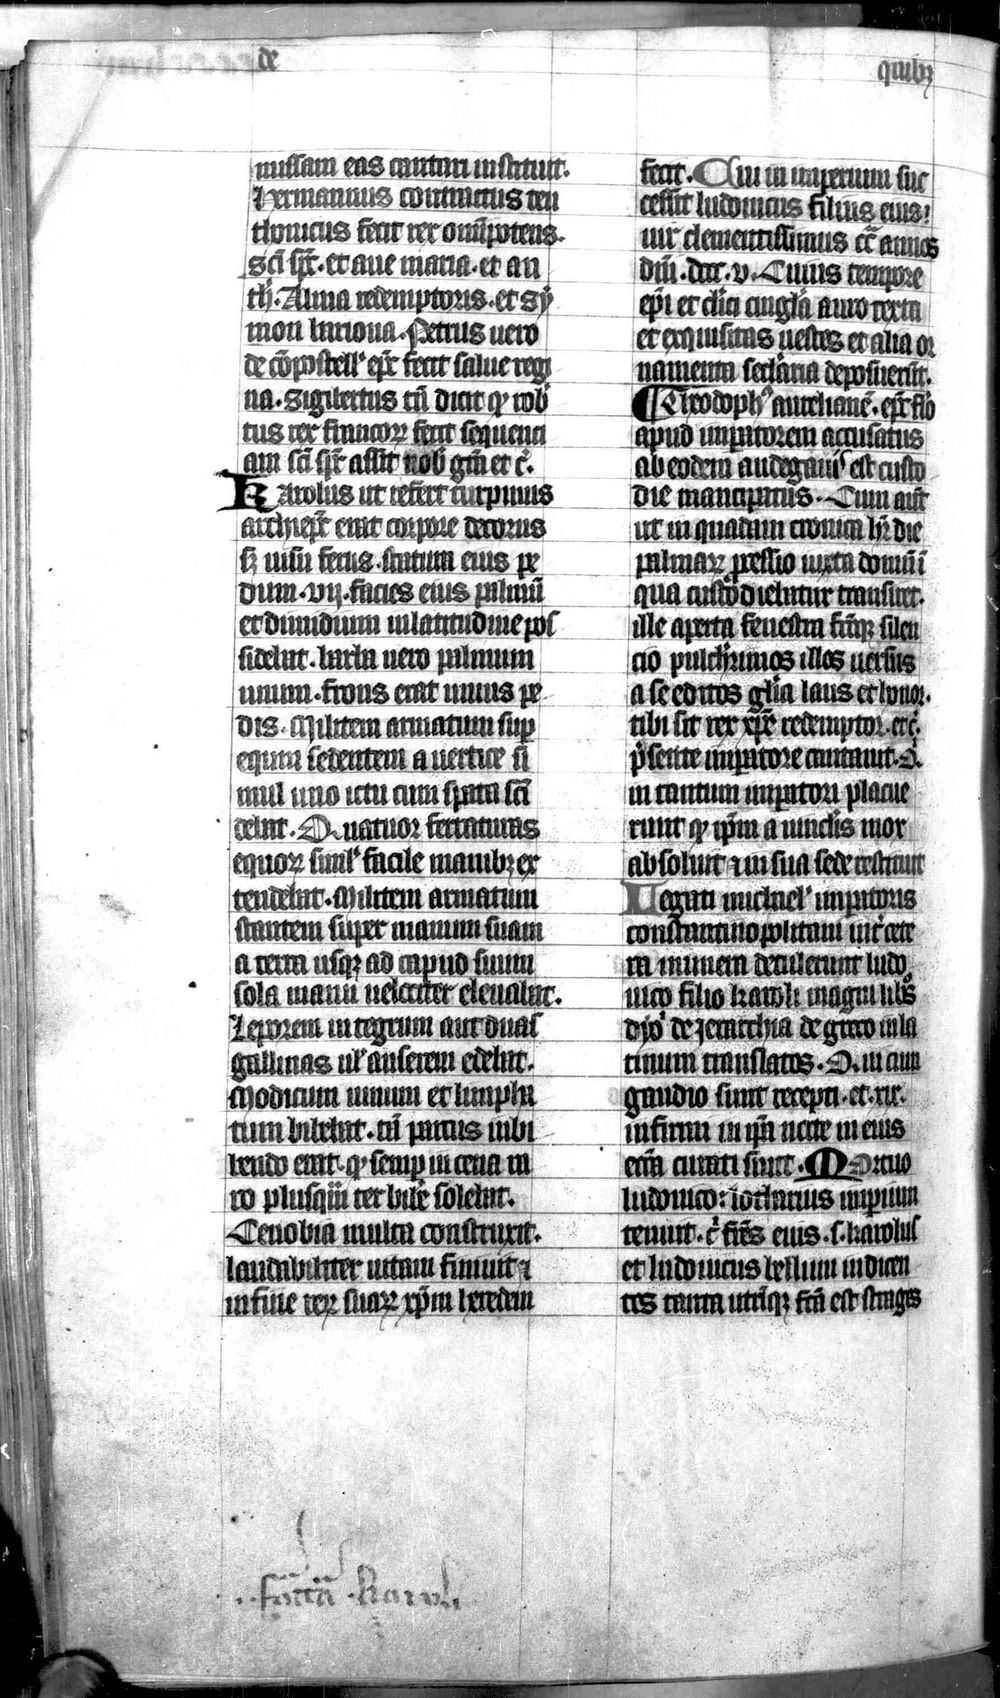 de
quibꝫ
missam eas cantari instituit.
Hermannus contractus teu
thonicus fecit rex omīpotens.
sc̄i sp̄c. et aue maria. et an
th̓. Alma redemptoris. et Sy
mon bariona. Petrus uero
de cōpostell̓ ep̄c fecit salue regi
na. Sigibertus tn̄ dicit ꝙ rob̓
tus rex francoꝝ fecit sequenci
am sc̄i sp̄c assit nob̓ gr̄a et c̓.
Karolus ut refert turpinus
archiep̄c erat corpore decorus
sꝫ uisu ferus. statura eius pe
dum .viij. facies eius palmū
et dimidium in latitudine pos
sidebat. barba uero palmum
unum. frons erat unius pe
dis. Militem armatum sup̄
equm sedentem a uertice si
mul uno ictu cum spata sci
debat. Quatuor ferraturas
equoꝝ siml̓ facile manibꝫ ex
tendebat. Militem armatum
stantem super manum suam
a terra usqꝫ ad capud suum
sola manu uelociter eleuabat.
Leporem integrum aut duas
gallinas ul̓ anserem edebat.
Modicum uinum et limpha
tum bibebat. tā parcus in bi
bendo erat. ꝙ semp̄ in cena ra
ro plusq̄m ter bib̓e solebat.
Cenobia multa construxit.
laudabiliter uitam finiuit ⁊
in fine reꝝ suaꝝ xp̄m heredem
fecit. Cui in imperium suc
cessit ludouicus filius eius!
uir clementissimus cc̄ annos
dn̄i .dccc.v. Cuius tempore
ep̄i et cl̓ici cingl̓a auro texta
et exquisitas uestes et alia or
namenta secl̓aria deposuerūt.
¶Theodoph̓ aurelianē. ep̄c fl̓o
apud imperatorem accusatus
ab eodem andegauis est custo
die mancipatus. Cum aūt
ut in quadam cronica hr̄ die
palmaꝝ ꝓcessio iuxta domū ī
qua custodiebatur transiret.
ille aperta fenestra factoqꝫ silen
cio pulch̓rimos illos uersus
a se editos gl̓ia laus et honor.
tibi sit rex xp̄e redemptor. etc̓.
p̓sente imperatore cantauit. Q̓
in tantum imperatori placue
runt ꝙ ip̄m a uinclis mox
absoluit ⁊ in sua sede restituit
Legati michael̓ imperatoris
constantinopolitani int̓ cete
ra munera detulerunt ludo
uico filio karoli magni libᵒs
dyo̓ de Jerarchia de greco in la
tinum translatos. Qui cum
gaudio sunt recepti. et .xix.
infirmi in ip̄a nocte in eius
ecc̄a curati sunt. Mortuo
ludouico: lotharius imperium
tenuit. c̓ fr̄es eius .s. karolus
et ludouicus bellum indicen
tes tanta utrīqꝫ fc̄a est strages
Karoli